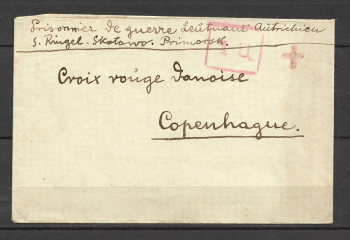 Prisonnier de guerre Leutnant Autrichien
S. Ringel. Skotowo. Primorsk.
Croix rouge Danoise
Copenhague.